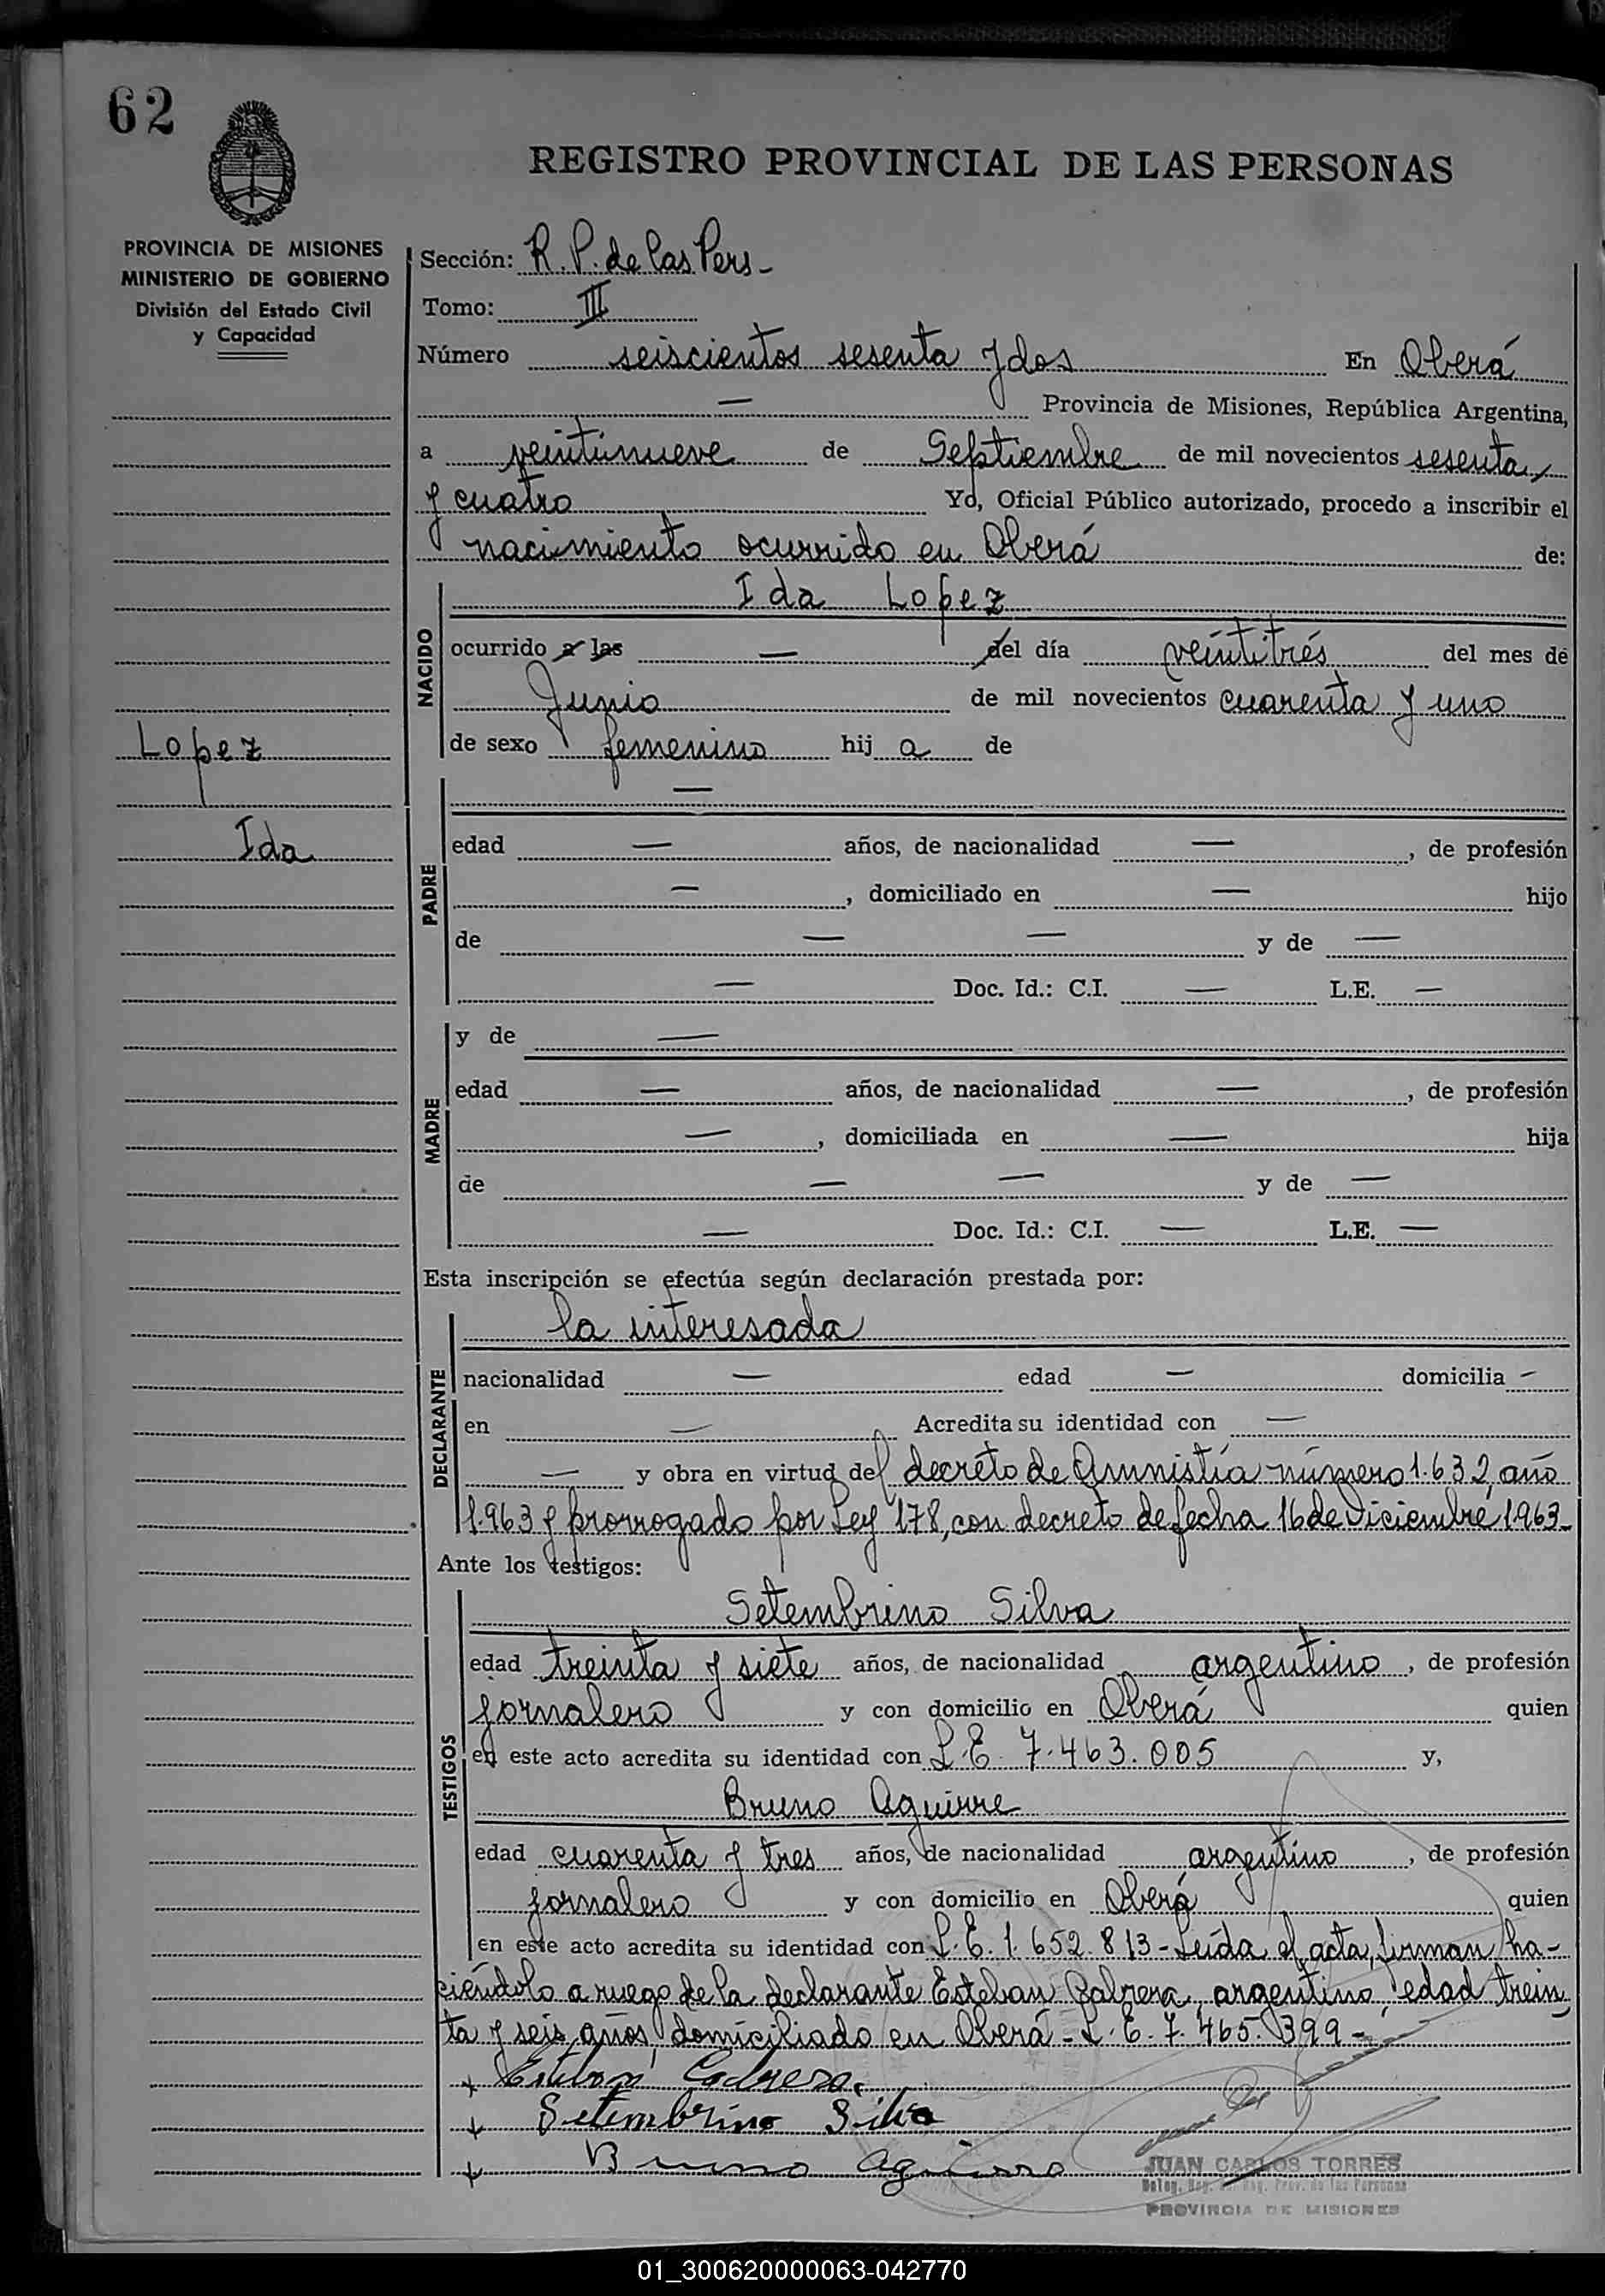 62
REGISTRO PROVINCIAL DE LAS PERSONAS
PROVINCIA DE MISIONES
MINISTERIO DE GOBIERNO
División del Estado Civil
y Capacidad
Sección: R. P. de las Pers -
Tomo: III
Número seiscientos sesenta y dos En Oberá
— Provincia de Misiones, República Argentina,
a veintinueve de Septiembre de mil novecientos sesenta
y cuatro Yo, Oficial Público autorizado, procedo a inscribir el
nacimiento ocurrido en Oberá de:
NACIDO
Ida Lopez
ocurrido a las — del día veintitrés del mes de
Junio de mil novecientos cuarenta y uno
de sexo femenino hij a de
Lopez
Ida
PADRE
—
edad — años, de nacionalidad — , de profesión
— , domiciliado en — hijo
de — — y de —
— Doc. Id.: C.I. — L.E. —
MADRE
y de —
edad — años, de nacionalidad — , de profesión
— , domiciliada en — hija
de — — y de —
— Doc. Id.: C.I. — L.E. —
Esta inscripción se efectúa según declaración prestada por:
DECLARANTE
la interesada
nacionalidad — edad — domicilia -
en — Acredita su identidad con —
— y obra en virtud del decreto de Amnistía número 1.632, año
1.963 y prorrogado por Ley 178, con decreto de fecha 16 de Diciembre 1963-
Ante los testigos:
TESTIGOS
Setembrino Silva
edad treinta y siete años, de nacionalidad argentino , de profesión
jornalero y con domicilio en Oberá quien
en este acto acredita su identidad con L.E. 7.463.005 y,
Bruno Aguirre
edad cuarenta y tres años, de nacionalidad argentino , de profesión
jornalero y con domicilio en Oberá quien
en este acto acredita su identidad con L.E. 1.652.813 - Leída el acta, firman ha-
ciéndolo a ruego de la declarante Esteban Cabrera, argentino, edad trein
ta y seis años, domiciliado en Oberá - L.E. 7.465.399 -
Esteban Cabrera
Setembrino Silva
Bruno Aguirre
JUAN CARLOS TORRES
Prov. de las Personas
PROVINCIA DE MISIONES
01_300620000063-042770